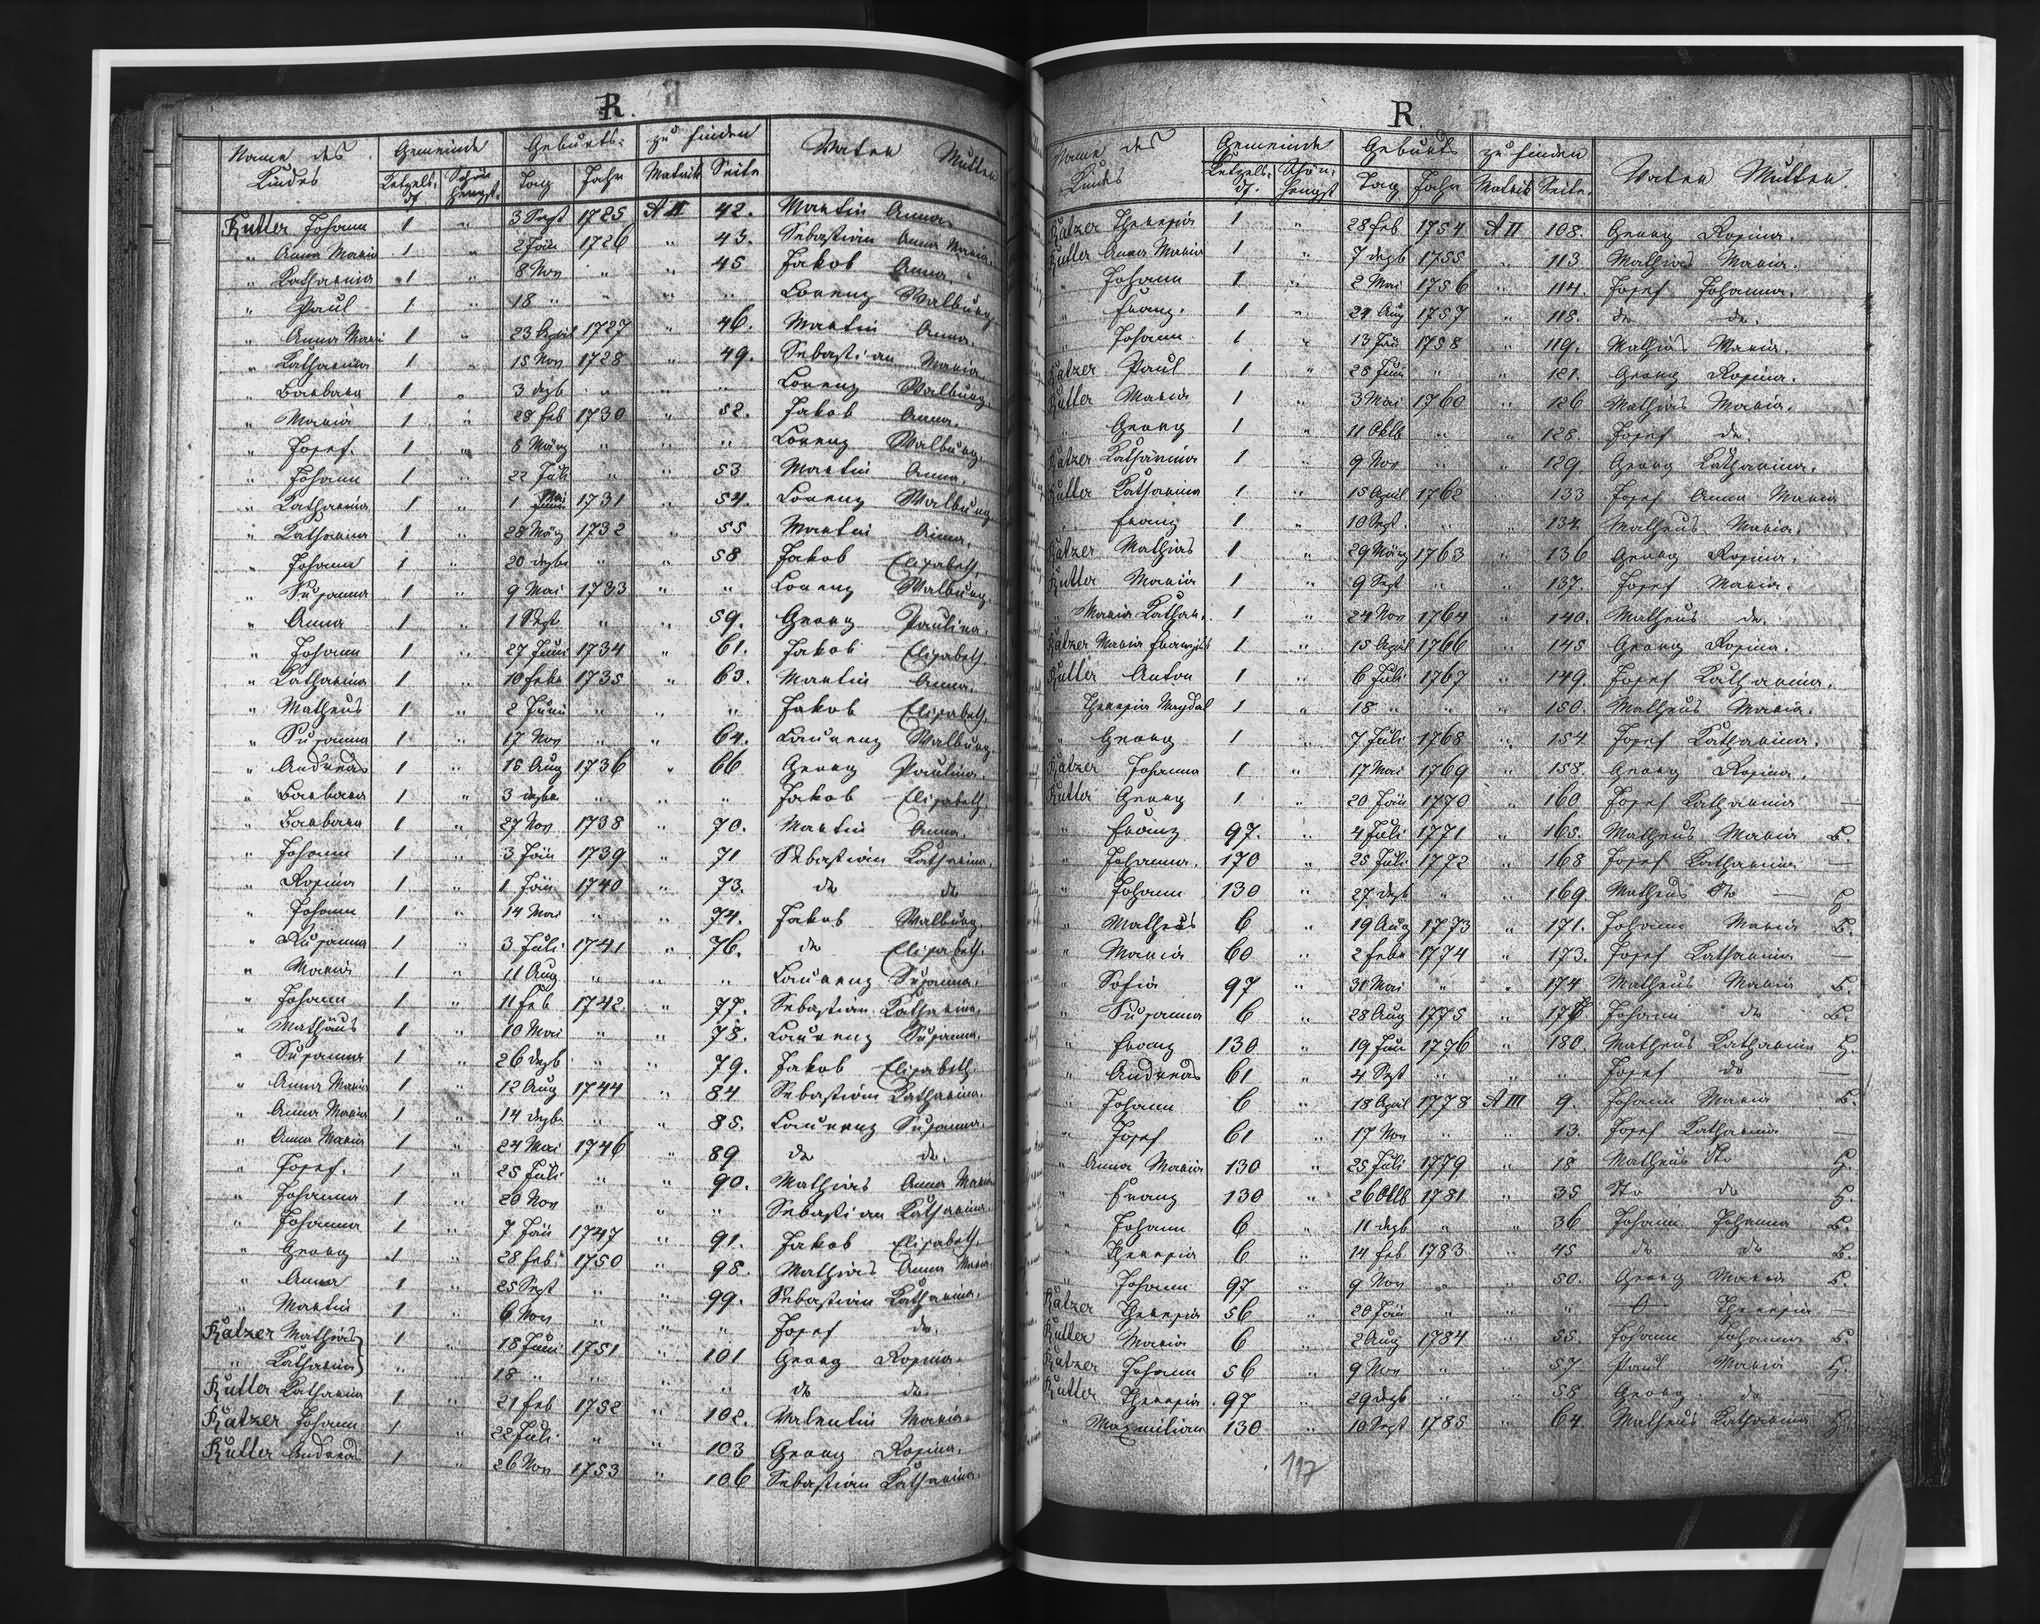 R.
Name des Kindes Gemeinde Geburts- zu finden Vater Mutter
Ketzels- df Schön hengst. Tag Jahr Matrik Seite
Rutter Johann 1 " 3 Sept 1725 A II 42. Martin Anna
" Anna Maria 1 " 2 Jän 1726 " 43. Sebastian Anna Maria
" Katharina 1 " 8 Nov " " 45 Jakob Anna.
" Paul 1 " 18 " " " " Lorenz Walburg
" Anna Mari 1 " 23 April 1727 " 46. Martin Anna.
" Katharina 1 " 15 Nov 1728 " 49. Sebastian Maria
" Barbara 1 " 3 dezb " " " Lorenz Walburg.
" Maria 1 " 28 feb 1730 " 52. Jakob Anna.
" Josef. 1 " 8 März " " " Lorenz Walburg.
" Johann 1 " 22 Juli " " 53 Martin Anna.
" Katharina 1 " 1 Mai 1731 " 54. Lorenz Walburg
" Katharina 1 " 28 März 1732 " 55 Martin Anna.
" Johann 1 " 20 dezbr " " 58 Jakob Elisabeth
" Susanna 1 " 9 Mai 1733 " " Lorenz Walburg
" Anna 1 " 1 Sept " " 59. Georg Paulina.
" Johann 1 " 27 Juni 1734 " 61. Jakob Elisabeth
" Katharina 1 " 10 febr 1735 " 63. Martin Anna.
" Matheus 1 " 2 Juni " " " Jakob Elisabeth.
" Susanna 1 " 17 Nov " " 64. Laurenz Walburg
" Andreas 1 " 15 Aug 1736 " 66 Georg Paulina.
" Barbara 1 " 3 dezbr " " " Jakob Elisabeth
" Barbara 1 " 27 Nov 1738 " 70. Martin Anna.
" Johann 1 " 3 Jän 1739 " 71 Sebastian Katharina.
" Rosina 1 " 1 Jän 1740 " 73. do do
" Johann 1 " 14 Mai " " 74. Jakob Walburg.
" Susanna 1 " 3 Juli 1741 " 76. do Elisabeth.
" Maria 1 " 11 Aug " " " Laurenz Susanna.
" Johann 1 " 11 Feb 1742 " 77. Sebastian Katharina.
" Mathäus 1 " 10 Mai " " 78. Laurenz Susanna.
" Susanna 1 " 26 dezb " " 79. Jakob Elisabeth
" Anna Maria 1 " 12 Aug 1744 " 84 Sebastian Katharina.
" Anna Maria 1 " 14 dezbr " " 85. Laurenz Susanna.
" Anna Maria 1 " 24 Mai 1746 " 89 do do.
" Josef. 1 " 25 Juli " " 90. Mathias Anna Maria
" Johanna 1 " 20 Nov " " " Sebastian Katharina
" Johanna 1 " 7 Jän 1747 " 91. Jakob Elisabeth.
" Georg 1 " 28 feb 1750 " 98. Mathias Anna Maria.
" Anna 1 " 25 Sept " " 99. Sebastian Katharina.
" Martin 1 " 6 Nov " " " Josef do.
Ratzer Mathias 1 " 18 Juni 1751 " 101 Georg Rosina.
" Katharina " " 18 " " " " do do
Rutter Katharina 1 " 21 feb 1752 " 102. Valentin Maria.
Ratzer Johann 1 " 22 Juli " " 103 Georg Rosina.
Rutter Andreas 1 " 26 Nov 1753 " 106 Sebastian Katharina.
R.
Name des Kindes Gemeinde Geburts zu finden Vater Mutter.
Ketzels- df. Schön- hengst Tag Jahr Matrik Seite.
Ratzer Theresia 1 " 28 feb 1754 A II 108. Georg Rosina.
Rutter Anna Maria 1 " 7 dezb 1755 " 113 Mathias Maria.
" Johann 1 " 2 Mai 1756 " 114. Josef Johanna.
" Franz. 1 " 24 Aug 1757 " 118. do do.
" Johann 1 " 13 Jän 1758 " 119. Mathias Maria.
Ratzer Paul 1 " 28 Juni " " 121. Georg Rosina.
Rutter Maria 1 " 3 Mai 1760 " 126 Mathias Maria.
" Georg 1 " 11 Oktb " " 128. Josef do.
Ratzer Katharina 1 " 9 Nov " " 129. Georg Katharina.
Rutter Katharina 1 " 15 April 1762 " 133 Josef Anna Maria
" Franz 1 " 10 Sept. " " 134. Matheus Maria.
Ratzer Mathias 1 " 29 März 1763 " 136 Georg Rosina.
Rutter Maria 1 " 9 Sept " " 137. Josef Maria.
" Maria Kathar. 1 " 24 Nov 1764 " 140. Matheus do.
Ratzer Maria 1 " 15 April 1766 " 145 Georg Rosina.
Rutter Anton 1 " 6 Juli 1767 " 149. Josef Katharina.
Theresia Magdal 1 " 18 " " " 150. Matheus Maria.
" Georg 1 " 7 Juli 1768 " 154 Josef Katharina.
Ratzer Johanna 1 " 17 Mai 1769 " 158. Georg Rosina.
Rutter Georg 1 " 20 Jän 1770 " 160 Josef Katharina —
" Franz 97. " 4 Juli 1771 " 165. Matheus Maria B.
" Johanna. 170 " 25 Juli 1772 " 168 Josef Katharina —
" Johann 130 " 27 dezb " " 169. Matheus do — H
" Matheus 6 " 19 Aug 1773 " 171. Johann Maria B.
" Maria 60 " 2 febr 1774 " 173. Josef Katharina —
" Sofia 97 " 31 Mai " " 174 Matheus Maria B.
" Susanna 6 " 28 Aug 1775 " Johann do B.
" Franz 130 " 19 Jän 1776 " 180. Matheus Katharina H.
" Andreas 61 " 4 Sept " " " Josef do —
" Johann 6 " 18 April 1778 A III 9. Johann Maria B.
" Josef 61 " 17 Nov " " 13. Josef Katharina —
" Anna Maria 130 " 25 Juli 1779 " 18 Matheus do H.
" Franz 130 " 26 Oktb 1781 " 35 do do H.
" Johann 6 " 11 dezb " " 36 Johann Johanna B.
" Theresia 6 " 14 feb 1783 " 45 do do B.
" Johann 97 " 9 Nov " " 50. Georg Maria B.
Ratzer Theresia 56 " 20 Jän " " " — 0 — Theresia —
Rutter Maria 6 " 2 Aug 1784 " 55. Johann Johanna B.
Ratzer Johann 56 " 9 Nov " " 57. Paul Maria H.
Rutter Theresia 97 " 29 dezb " " 58 Georg do —
" Maximilian 130 " 10 Sept 1785 " 64. Matheus Katharina H
117